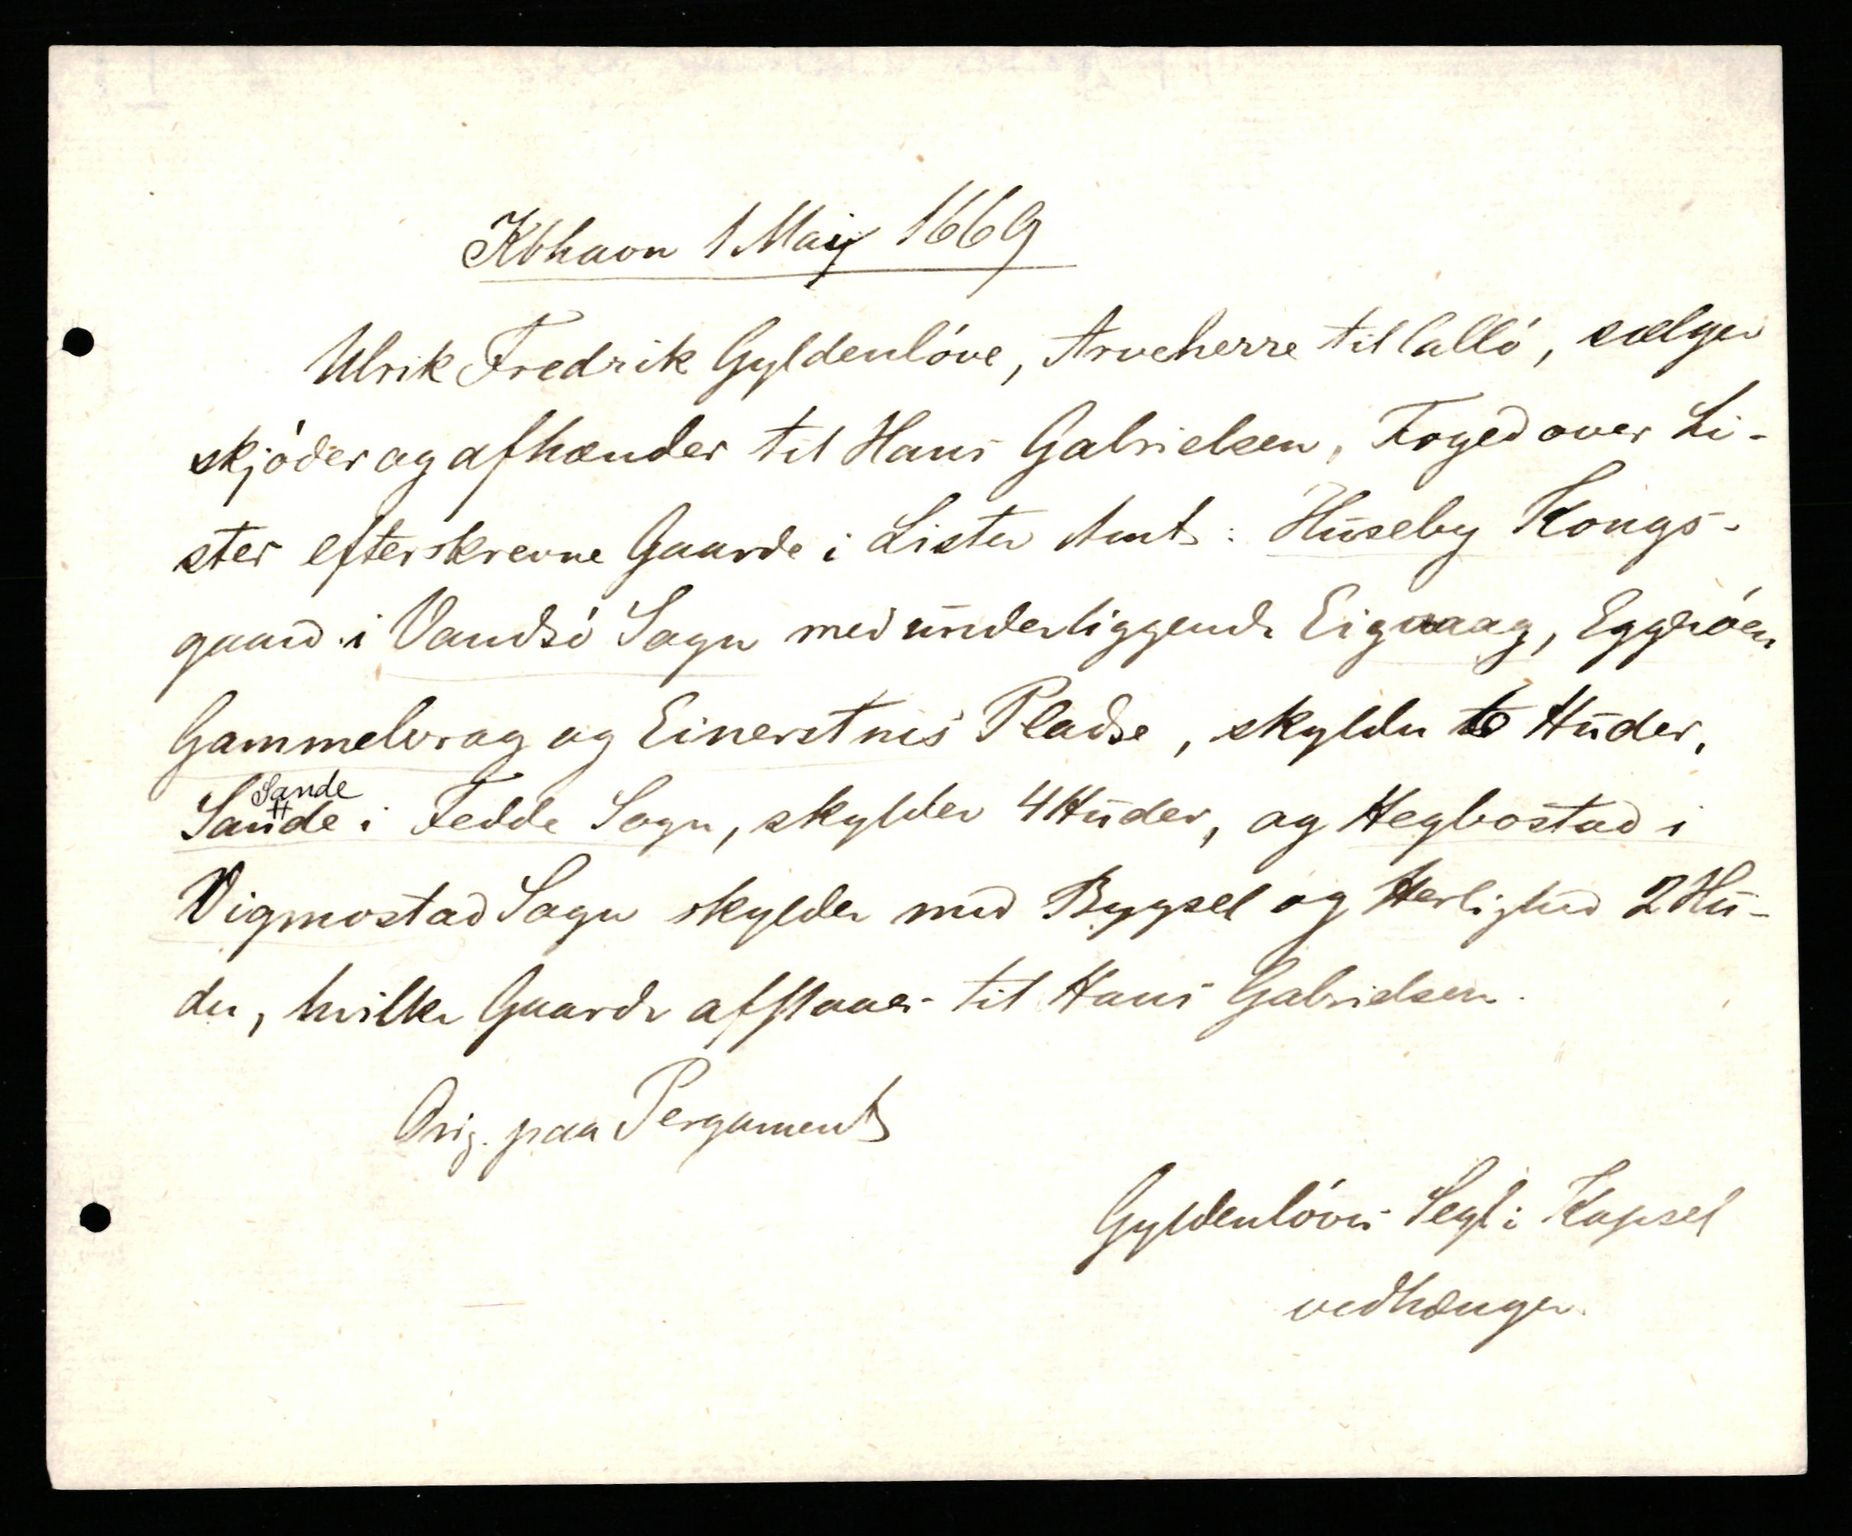 Kbhavn 1 Maij 1669
Ulrik Fredrik Gyldenlóve, Arveherre til Calló, sælger
skjóder og afhænder til Hans Gabrielsen, Foged over Li-
ster efterskrevne Gaarde i Lister Amt: Huseby Kongs-
gaard i Vandsó Sogn med underliggende Eigvaag, Eggróen
Gammelvrag og Einerstnes Pladse, skylder Huder,
Sande
Saude i Fedde Sogn, skylder 4 Huder, og Hegbostad i
Vigmostad Sogn skylder med Bygsel og Herlighed 2 Hu-
der, hvilke Gaarde afstaaes til Hans Gabrielsen.
Orig. paa Pergament
Gyldenlóves Segl i Kapsel
vedhænger.